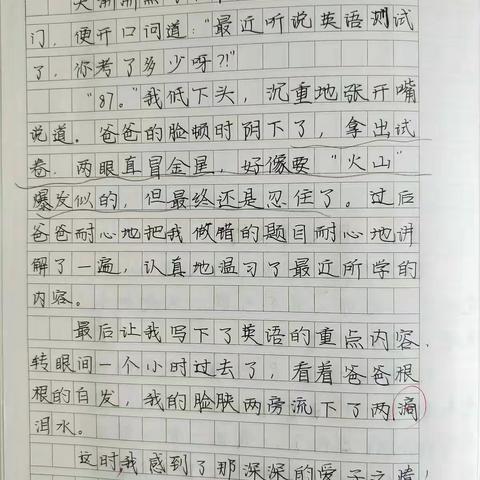 门，便开口问道："最近听说英语测试
了，你考了多少呀?!"
"87。"我低下头，沉重地张开嘴
说道。爸爸的脸顿时阴下了，拿出试
卷，两眼直冒金星，好像要"火山"
爆发似的，但最终还是忍住了。过后
爸爸耐心地把我做错的题目耐心地讲
解了一遍，认真地温习了最近所学的
内容。
最后让我写下了英语的重点内容.
转眼间一个小时过去了，看着爸爸根
根的白发，我的脸胦两旁流下了两滴
泪水。
这时,我感到了那深深的爱子之情!